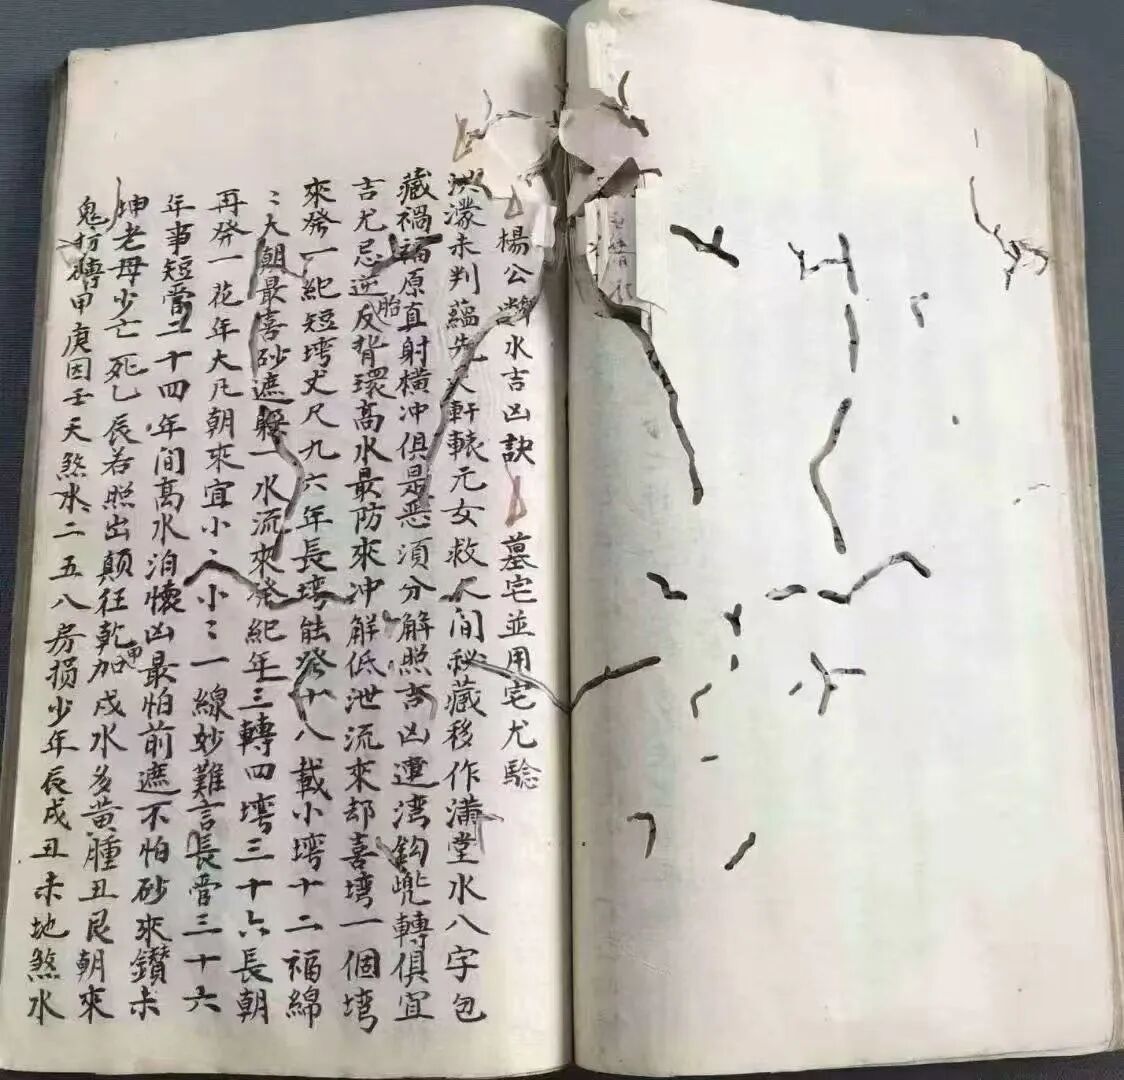 楊公辨水吉凶訣 墓宅並用宅尤驗
洪濛未判蘊先天軒轅元女救人间秘藏移作满堂水八字包
藏禍福原直射橫冲俱是恶須分解照吉凶邅湾鈎兠轉俱宜
吉尤忌逆反背環高水最防來冲解低泄流來却喜塆一個塆
胎
來發一紀短塆丈尺九六年長塆能發十八載小塆十二福綿
〻大朝最喜砂遮躲一水流來發紀年三轉四塆三十六長朝
再發一花年大凡朝來宜小〻小〻一線妙難言長管三十六
年事短管二十四年间高水泊懷凶最怕前遮不怕砂來鑽未
坤老母少亡死乙辰若照出颠狂乾加戍水多黃腫丑艮朝來
甲
鬼 轉甲庚因壬天煞水二五八房损少年辰戍丑未地煞水